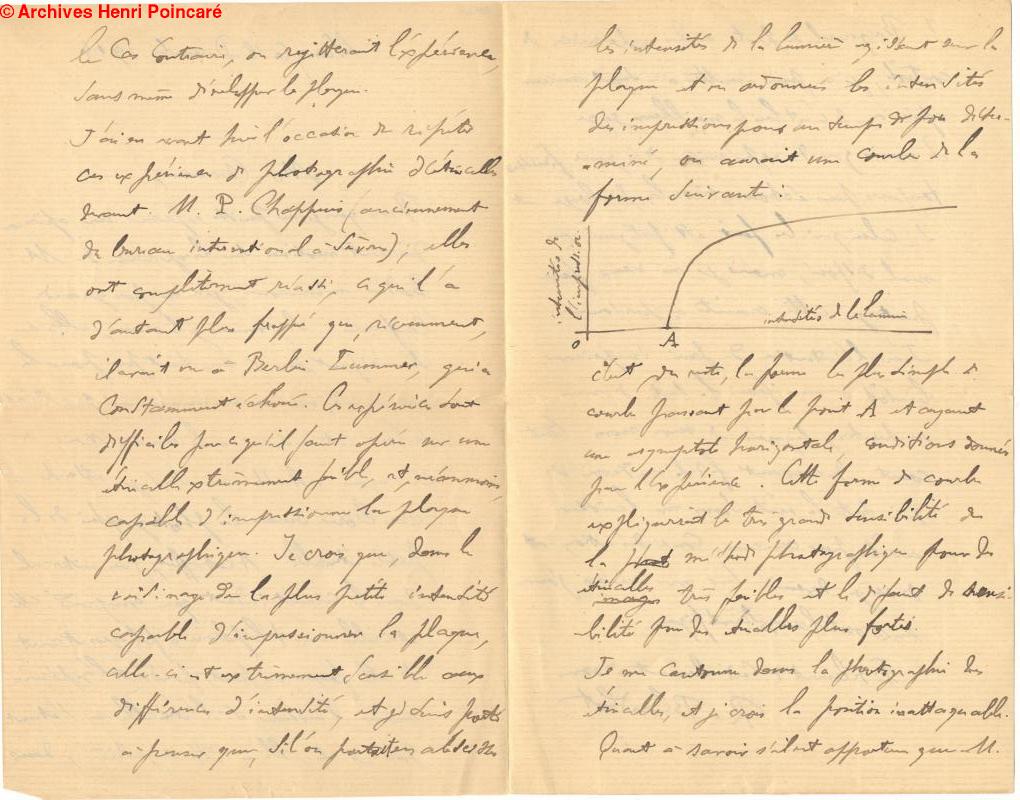 © Archives Henri Poincaré
le cas contraire, on rejetterait l'expérience,
sans même développer la plaque.
J'ai eu récemment l'occasion de répéter
ces expériences de photographie d'étincelles
devant M. P. Chappuis (anciennement
du bureau international à Sèvres); elles
ont complètement réussi, ce qui l'a
d'autant plus frappé que, récemment,
il avait vu à Berlin Lummer, qui a
constamment échoué. Ces expériences sont
difficiles parce qu'il faut opérer sur une
étincelle extrêmement faible, et, néanmoins,
capable d'impressionner la plaque
photographique. Je crois que, dans le
voisinage de la plus petite intensité
capable d'impressionner la plaque,
celle-ci est extrêmement sensible aux
différences d'intensité, et je suis porté
à penser que, si l'on portait en abscisses
les intensités de la lumière agissant sur la
plaque et en ordonnées les intensités
des impressions pour un temps de pose déter-
miné, on aurait une courbe de la
forme suivante :
intensités de
l'impression
intensités de la lumière
O
A
C'est, du reste, la forme la plus simple de
courbe passant par le point A et ayant
une asymptote horizontale, conditions données
par l'expérience. Cette forme de courbe
expliquerait la très grande sensibilité de
la phot méthode photographique pour des
étincelles
images très faibles et le défaut de sensi-
bilité pour des étincelles plus fortes.
Je me cantonne dans la photographie des
étincelles, et je crois la position inattaquable.
Quant à savoir s'il est opportun que M.